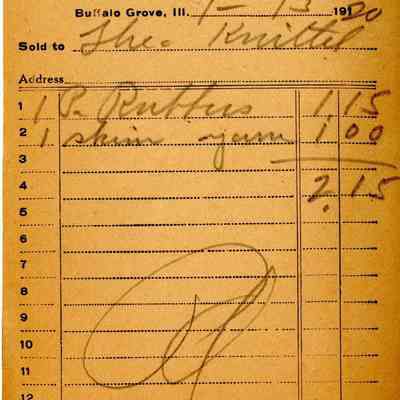 Buffalo Grove, Ill. 1-13 1920
Sold to Theo Knittel
Address
1 1 P. Rubbers 1.15
2 1 skein yarn 1.00
3
4 2.15
5
6
7
8
9
10
11
12